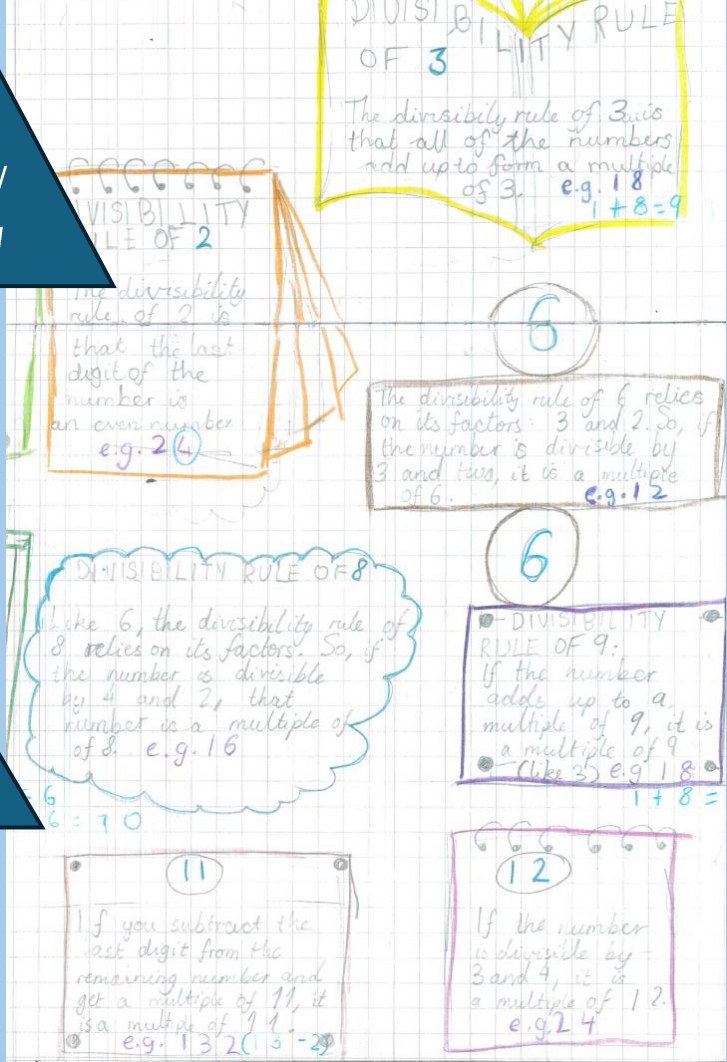 DIVISIBILITY RULE
OF 3
The divisibily rule of 3 is
that all of the numbers
add up to form a multiple
of 3. e.g. 18
1 + 8 = 9
VISIBILITY
LE OF 2
The divisibility
rule of 2 is
that the last
digit of the
number is
an even number
e.g. 24
6
The divisibility rule of 6 relies
on its factors: 3 and 2. So, if
the number is divisible by
3 and two, it is a multiple
of 6. e.g. 12
6
DIVISIBILITY RULE OF 8
Like 6, the divisibility rule of
8 relies on its factors. So, if
the number is divisible
by 4 and 2, that
number is a multiple of
of 8. e.g. 16
DIVISIBILITY
RULE OF 9:
If the number
adds up to a
multiple of 9, it is
a multiple of 9
(like 3) e.g 18
1 + 8 =
6
6 = 10
11
If you subtract the
last digit from the
remaining number and
get a multiple of 11, it
is a multiple of 11.
e.g. 132(13-2)
12
If the number
is divisible by
3 and 4, it is
a multiple of 12.
e.g. 24